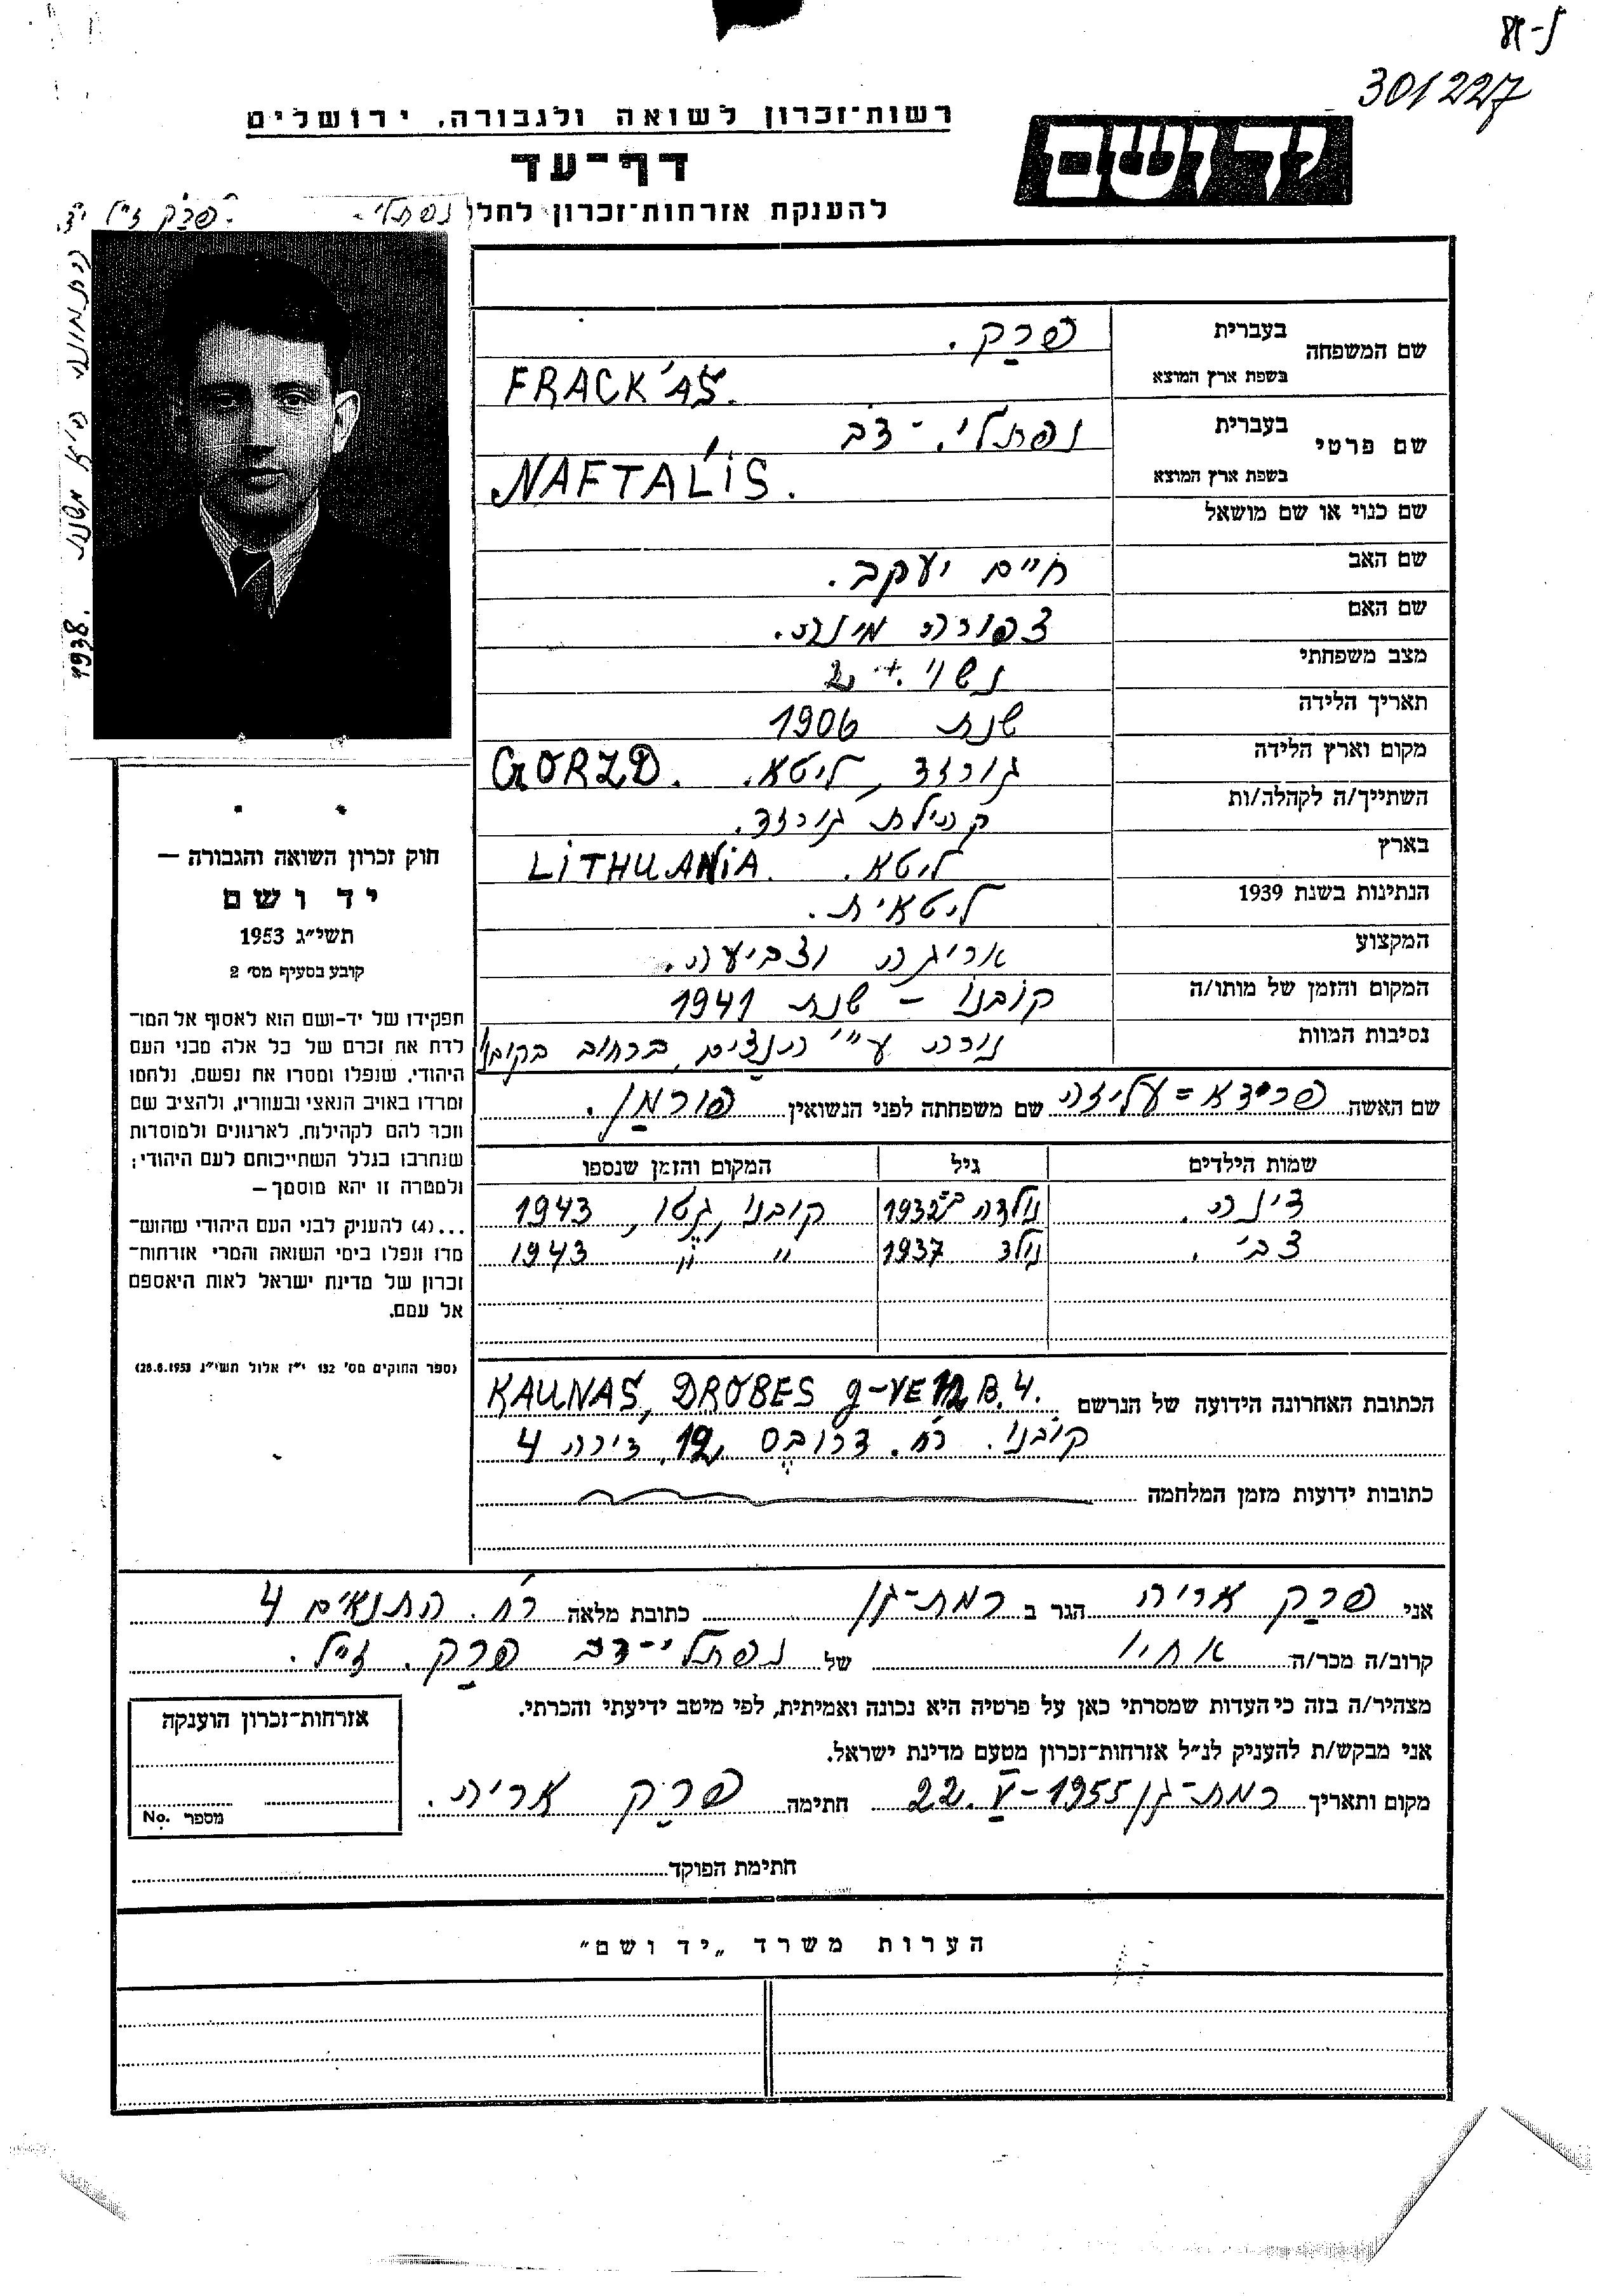 301227
רשות־זכרון לשואה ולגבורה, ירושלים
יד ושם
דף־עד
להענקת אזרחות־זכרון לחלל
נפתלי פרק ז״ל
התמונה היא משנת 1938.
שם המשפחה
בעברית פרק.
בשפת ארץ המוצא FRACK'AS.
שם פרטי
בעברית נפתלי־דב
בשפת ארץ המוצא NAFTALIS.
שם כנוי או שם מושאל
שם האב חיים יעקב.
שם האם צפורה מינה.
מצב משפחתי נשוי + 2
תאריך הלידה שנת 1906
מקום וארץ הלידה גורזד, ליטא. GORZD.
השתייך/ה לקהלה/ות קהילת גורזד.
בארץ ליטא. LITHUANIA
הנתינות בשנת 1939 ליטאית.
המקצוע אריגה וצביעה.
המקום והזמן של מותו/ה קובנו – שנת 1941
נסיבות המוות נורה ע״י הנצים ברחוב בקובנו
שם האשה פרידא = עליזה שם משפחתה לפני הנשואין פורמן.
שמות הילדים גיל המקום והזמן שנספו
דינה. נולדה ב־1932 קובנו, גטו, 1943
צבי. נולד 1937 " " 1943
הכתובת האחרונה הידועה של הנרשם KAUNAS, DROBES g-VE 12 B. 4.
קובנו. רח. דרובס 12, דירה 4
כתובות ידועות מזמן המלחמה
חוק זכרון השואה והגבורה —
יד ושם
תשי״ג 1953
קובע בסעיף מס׳ 2
תפקידו של יד־ושם הוא לאסוף אל המו־
לדת את זכרם של כל אלה מבני העם
היהודי, שנפלו ומסרו את נפשם, נלחמו
ומרדו באויב הנאצי ובעוזריו, ולהציב שם
וזכר להם לקהילות, לארגונים ולמוסדות
שנחרבו בגלל השתייכותם לעם היהודי;
ולמטרה זו יהא מוסמך—
...(4) להעניק לבני העם היהודי שהוש־
מדו ונפלו בימי השואה והמרי אזרחות־
זכרון של מדינת ישראל לאות היאספם
אל עמם.
(ספר החוקים מס׳ 132 י״ז אלול תשי״ג 28.8.1953)
אני פרק אריה הגר ב רמת־גן כתובת מלאה רח. התנאים 4
קרוב/ה מכר/ה אחיו של נפתלי־דב פרק. ז״ל.
מצהיר/ה בזה כי העדות שמסרתי כאן על פרטיה היא נכונה ואמיתית, לפי מיטב ידיעתי והכרתי.
אני מבקש/ת להעניק לנ״ל אזרחות־זכרון מטעם מדינת ישראל.
מקום ותאריך רמת־גן 22.V-1955 חתימה פרק אריה.
אזרחות־זכרון הוענקה
מספר No.
חתימת הפוקד
הערות משרד „יד ושם״